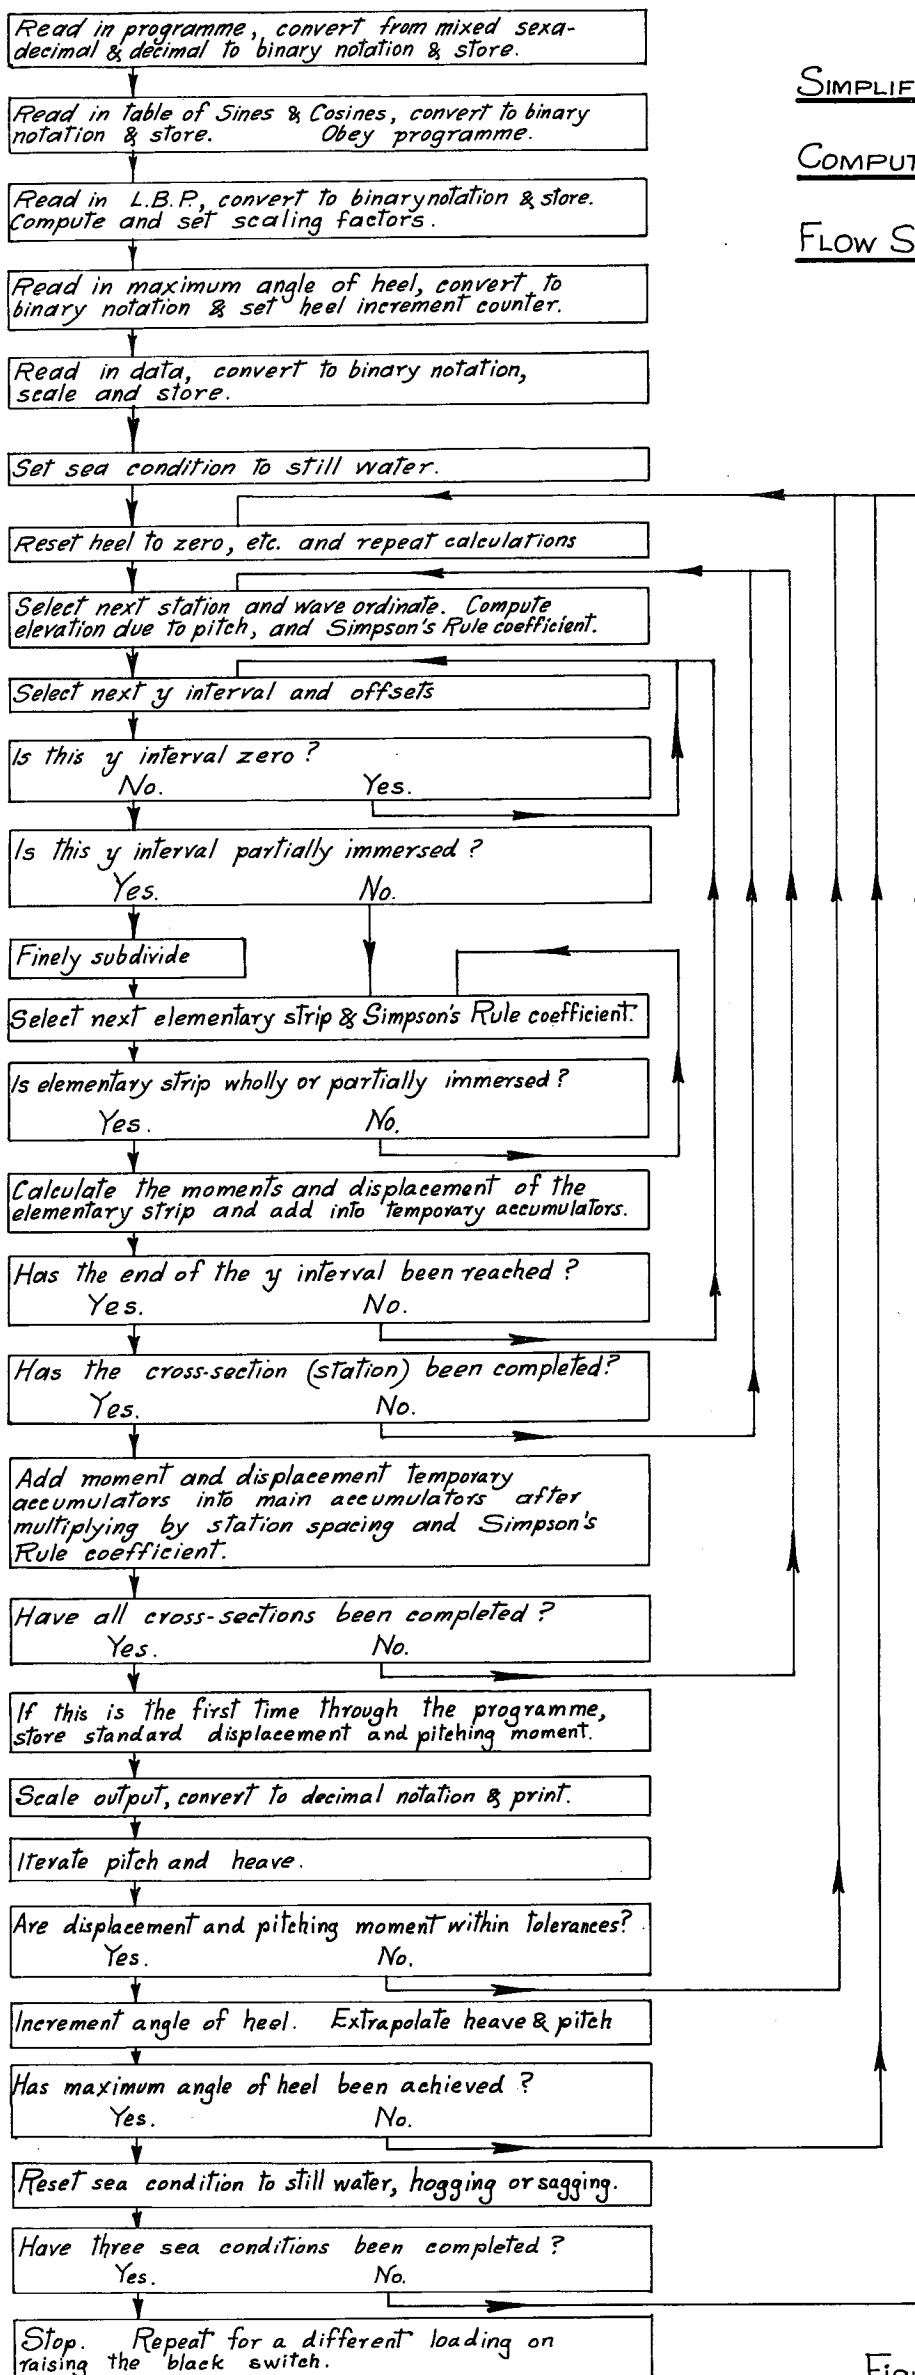 Read in programme, convert from mixed sexa-
decimal & decimal to binary notation & store.
SIMPLIF
Read in table of Sines & Cosines, convert to binary
notation & store. Obey programme.
COMPUT
Read in L.B.P., convert to binary notation & store.
Compute and set scaling factors.
FLOW S
Read in maximum angle of heel, convert to
binary notation & set heel increment counter.
Read in data, convert to binary notation,
scale and store.
Set sea condition to still water.
Reset heel to zero, etc. and repeat calculations
Select next station and wave ordinate. Compute
elevation due to pitch, and Simpson's Rule coefficient.
Select next y interval and offsets
Is this y interval zero?
No. Yes.
Is this y interval partially immersed?
Yes. No.
Finely subdivide
Select next elementary strip & Simpson's Rule coefficient.
Is elementary strip wholly or partially immersed?
Yes. No.
Calculate the moments and displacement of the
elementary strip and add into temporary accumulators.
Has the end of the y interval been reached?
Yes. No.
Has the cross-section (station) been completed?
Yes. No.
Add moment and displacement temporary
accumulators into main accumulators after
multiplying by station spacing and Simpson's
Rule coefficient.
Have all cross-sections been completed?
Yes. No.
If this is the first time through the programme,
store standard displacement and pitching moment.
Scale output, convert to decimal notation & print.
Iterate pitch and heave.
Are displacement and pitching moment within tolerances?
Yes. No.
Increment angle of heel. Extrapolate heave & pitch
Has maximum angle of heel been achieved?
Yes. No.
Reset sea condition to still water, hogging or sagging.
Have three sea conditions been completed?
Yes. No.
Stop. Repeat for a different loading on
raising the black switch.
Figu